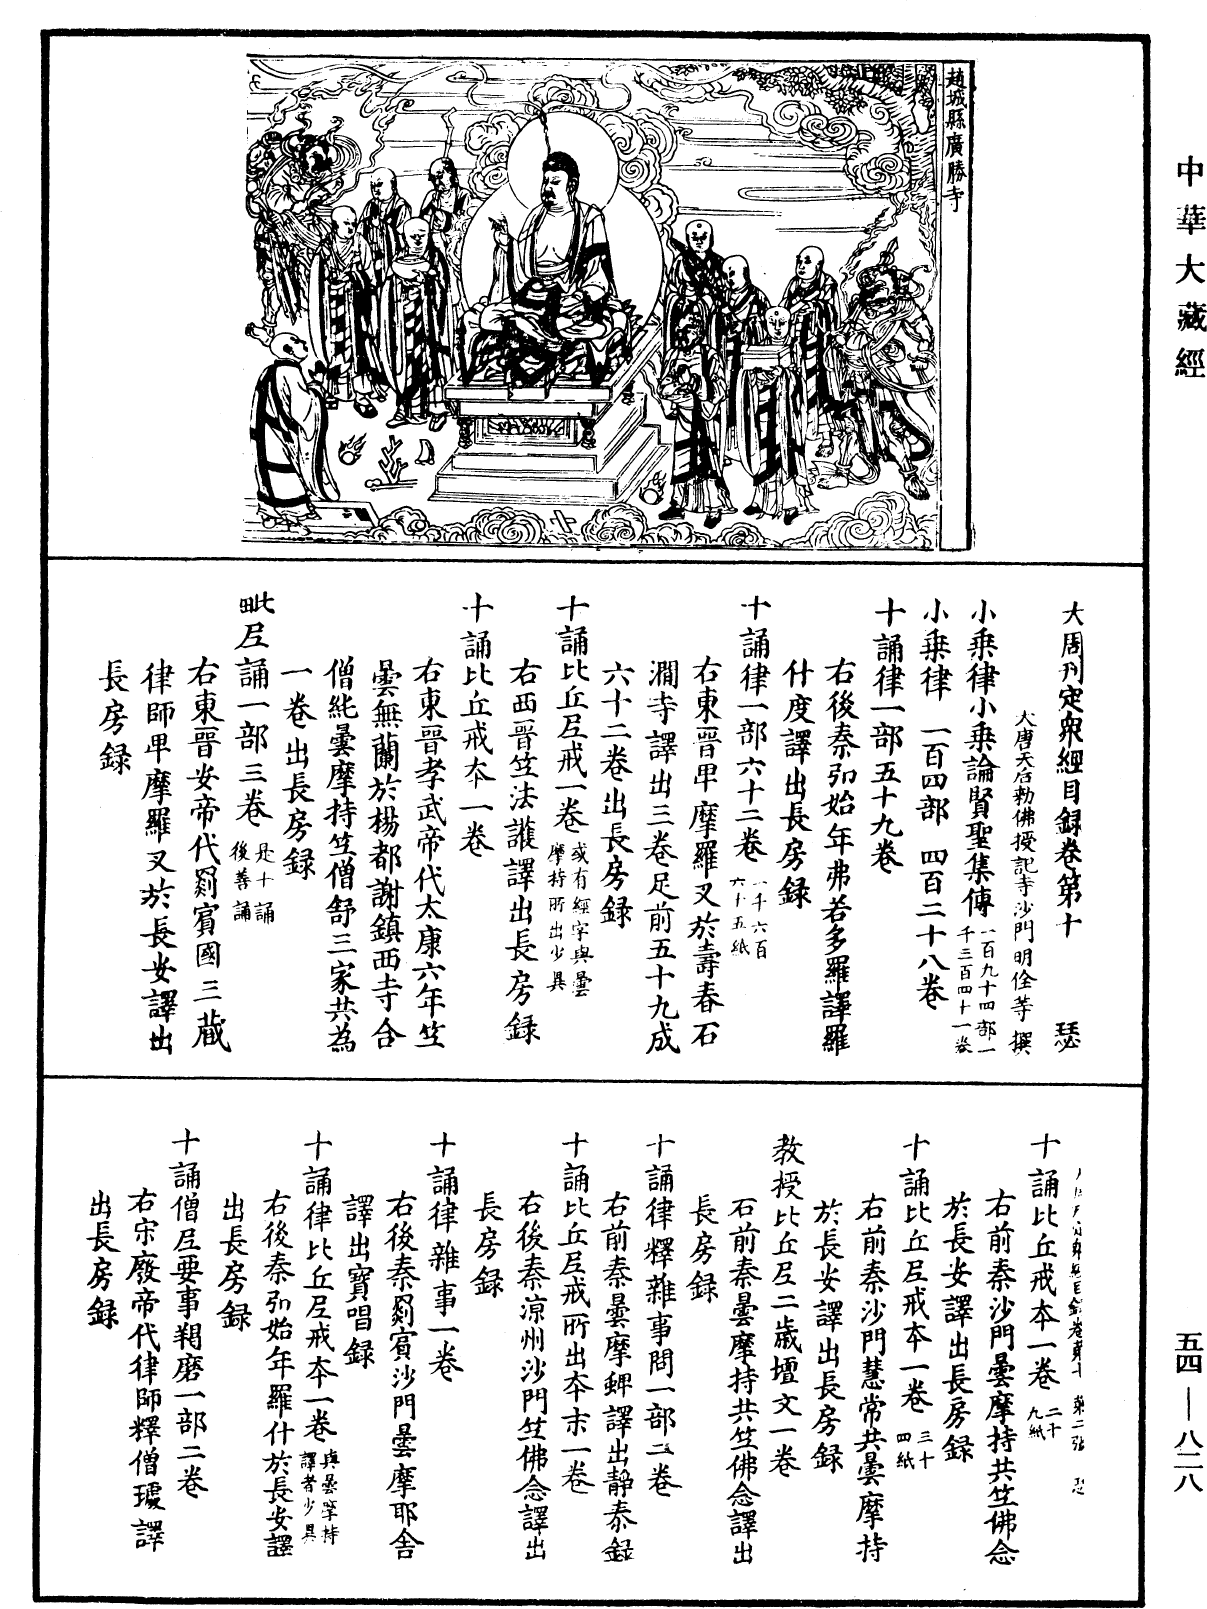 中華大藏經
趙城縣廣勝寺
大周刊定衆經目録卷第十　瑟
大唐天后勅佛授記寺沙門明佺等撰
小乗律小乗論賢聖集傳一百九十四部一千三百四十一卷
小乗律　一百四部　四百二十八卷
十誦律一部五十九卷
右後秦弘始年弗若多羅譯羅
什度譯出長房録
十誦律一部六十二卷一千六百六十五紙
右東晉卑摩羅叉於壽春石
澗寺譯出三卷足前五十九成
六十二卷出長房録
十誦比丘尼戒一卷或有經字與曇摩持所出少異
右西晉竺法護譯出長房録
十誦比丘戒夲一卷
右東晉孝武帝代太康六年竺
曇無蘭於楊都謝鎮西寺合
僧純曇摩持竺僧舒三家共為
一卷出長房録
毗尼誦一部三卷是十誦後善誦
右東晉安帝代罽賓國三藏
律師卑摩羅叉於長安譯出
長房録
卷第十　第二張　瑟
十誦比丘戒夲一卷二十九紙
右前秦沙門曇摩持共竺佛念
於長安譯出長房録
十誦比丘尼戒夲一卷三十四紙
右前秦沙門慧常共曇摩持
於長安譯出長房録
教授比丘尼二歲壇文一卷
石前秦曇摩持共竺佛念譯出
長房録
十誦律釋雜事問一部二卷
右前秦曇摩蜱譯出靜泰録
十誦比丘尼戒所出夲末一卷
右後秦涼州沙門竺佛念譯出
長房録
十誦律雜事一卷
右後秦罽賓沙門曇摩耶舍
譯出寶唱録
十誦律比丘尼戒夲一卷與曇摩持譯者少異
右後秦弘始年羅什於長安譯
出長房録
十誦僧尼要事羯磨一部二卷
右宋廢帝代律師釋僧璩譯
出長房録
五四—八二八